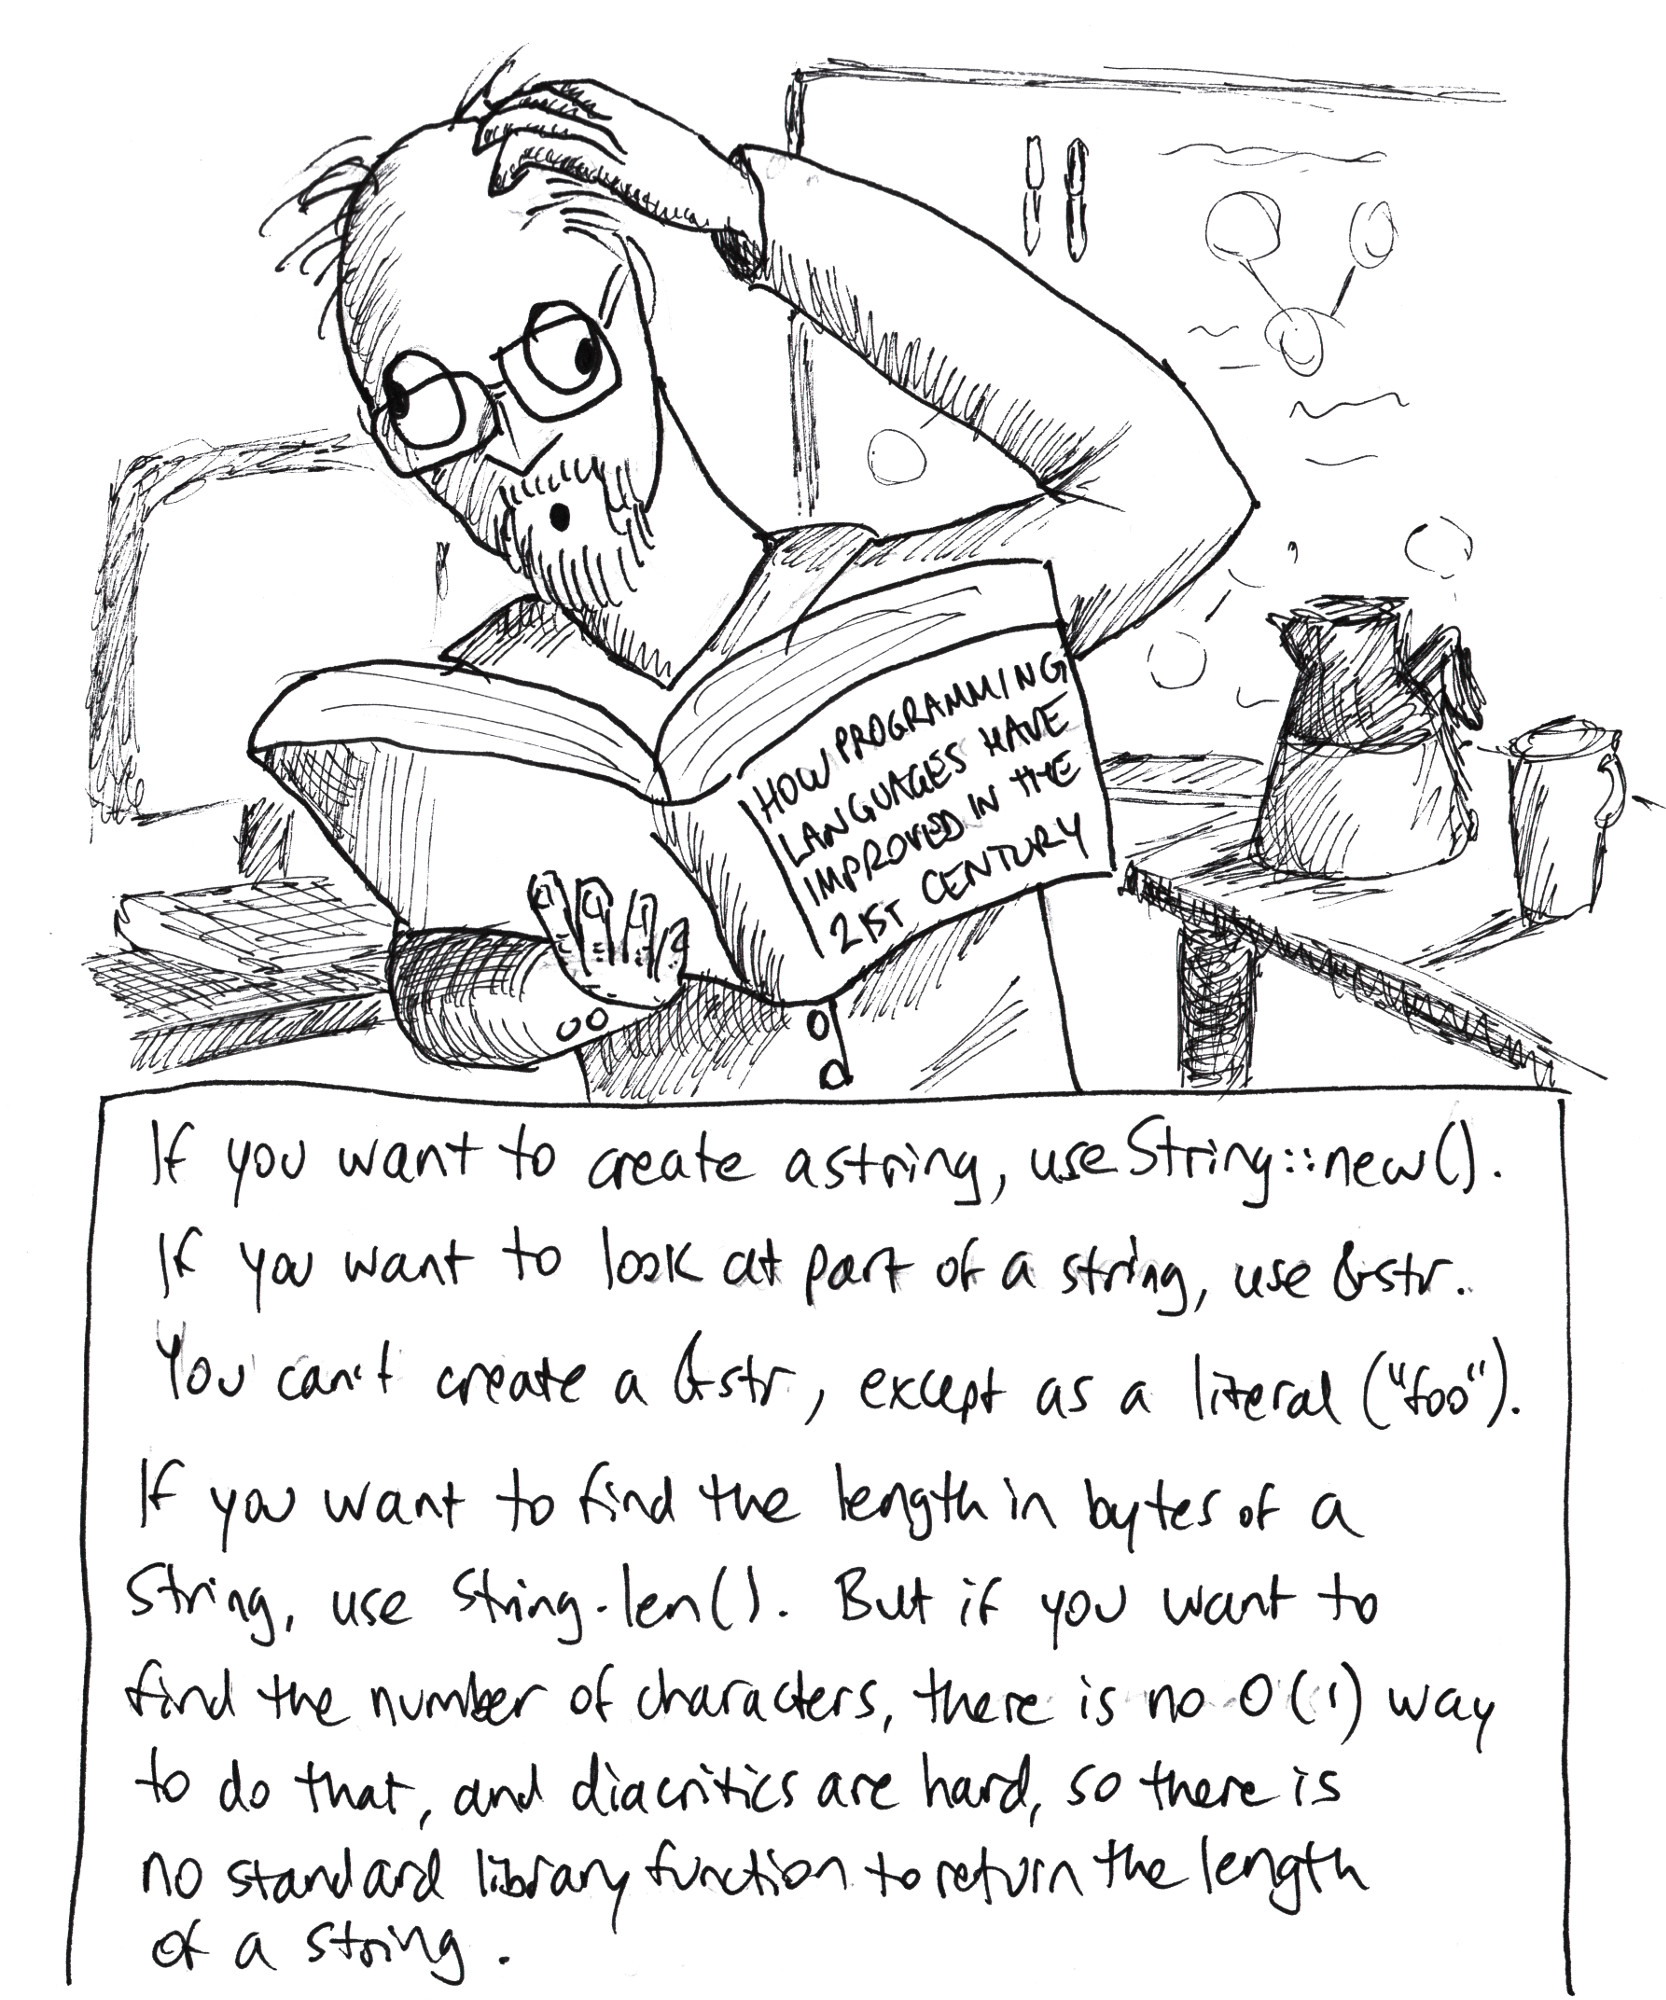 HOW PROGRAMMING
LANGUAGES HAVE
IMPROVED IN THE
21ST CENTURY
If you want to create a string, use String::new().
If you want to look at part of a string, use &str.
You can't create a &str, except as a literal ("foo").
If you want to find the length in bytes of a
String, use String.len(). But if you want to
find the number of characters, there is no O(1) way
to do that, and diacritics are hard, so there is
no standard library function to return the length
of a string.